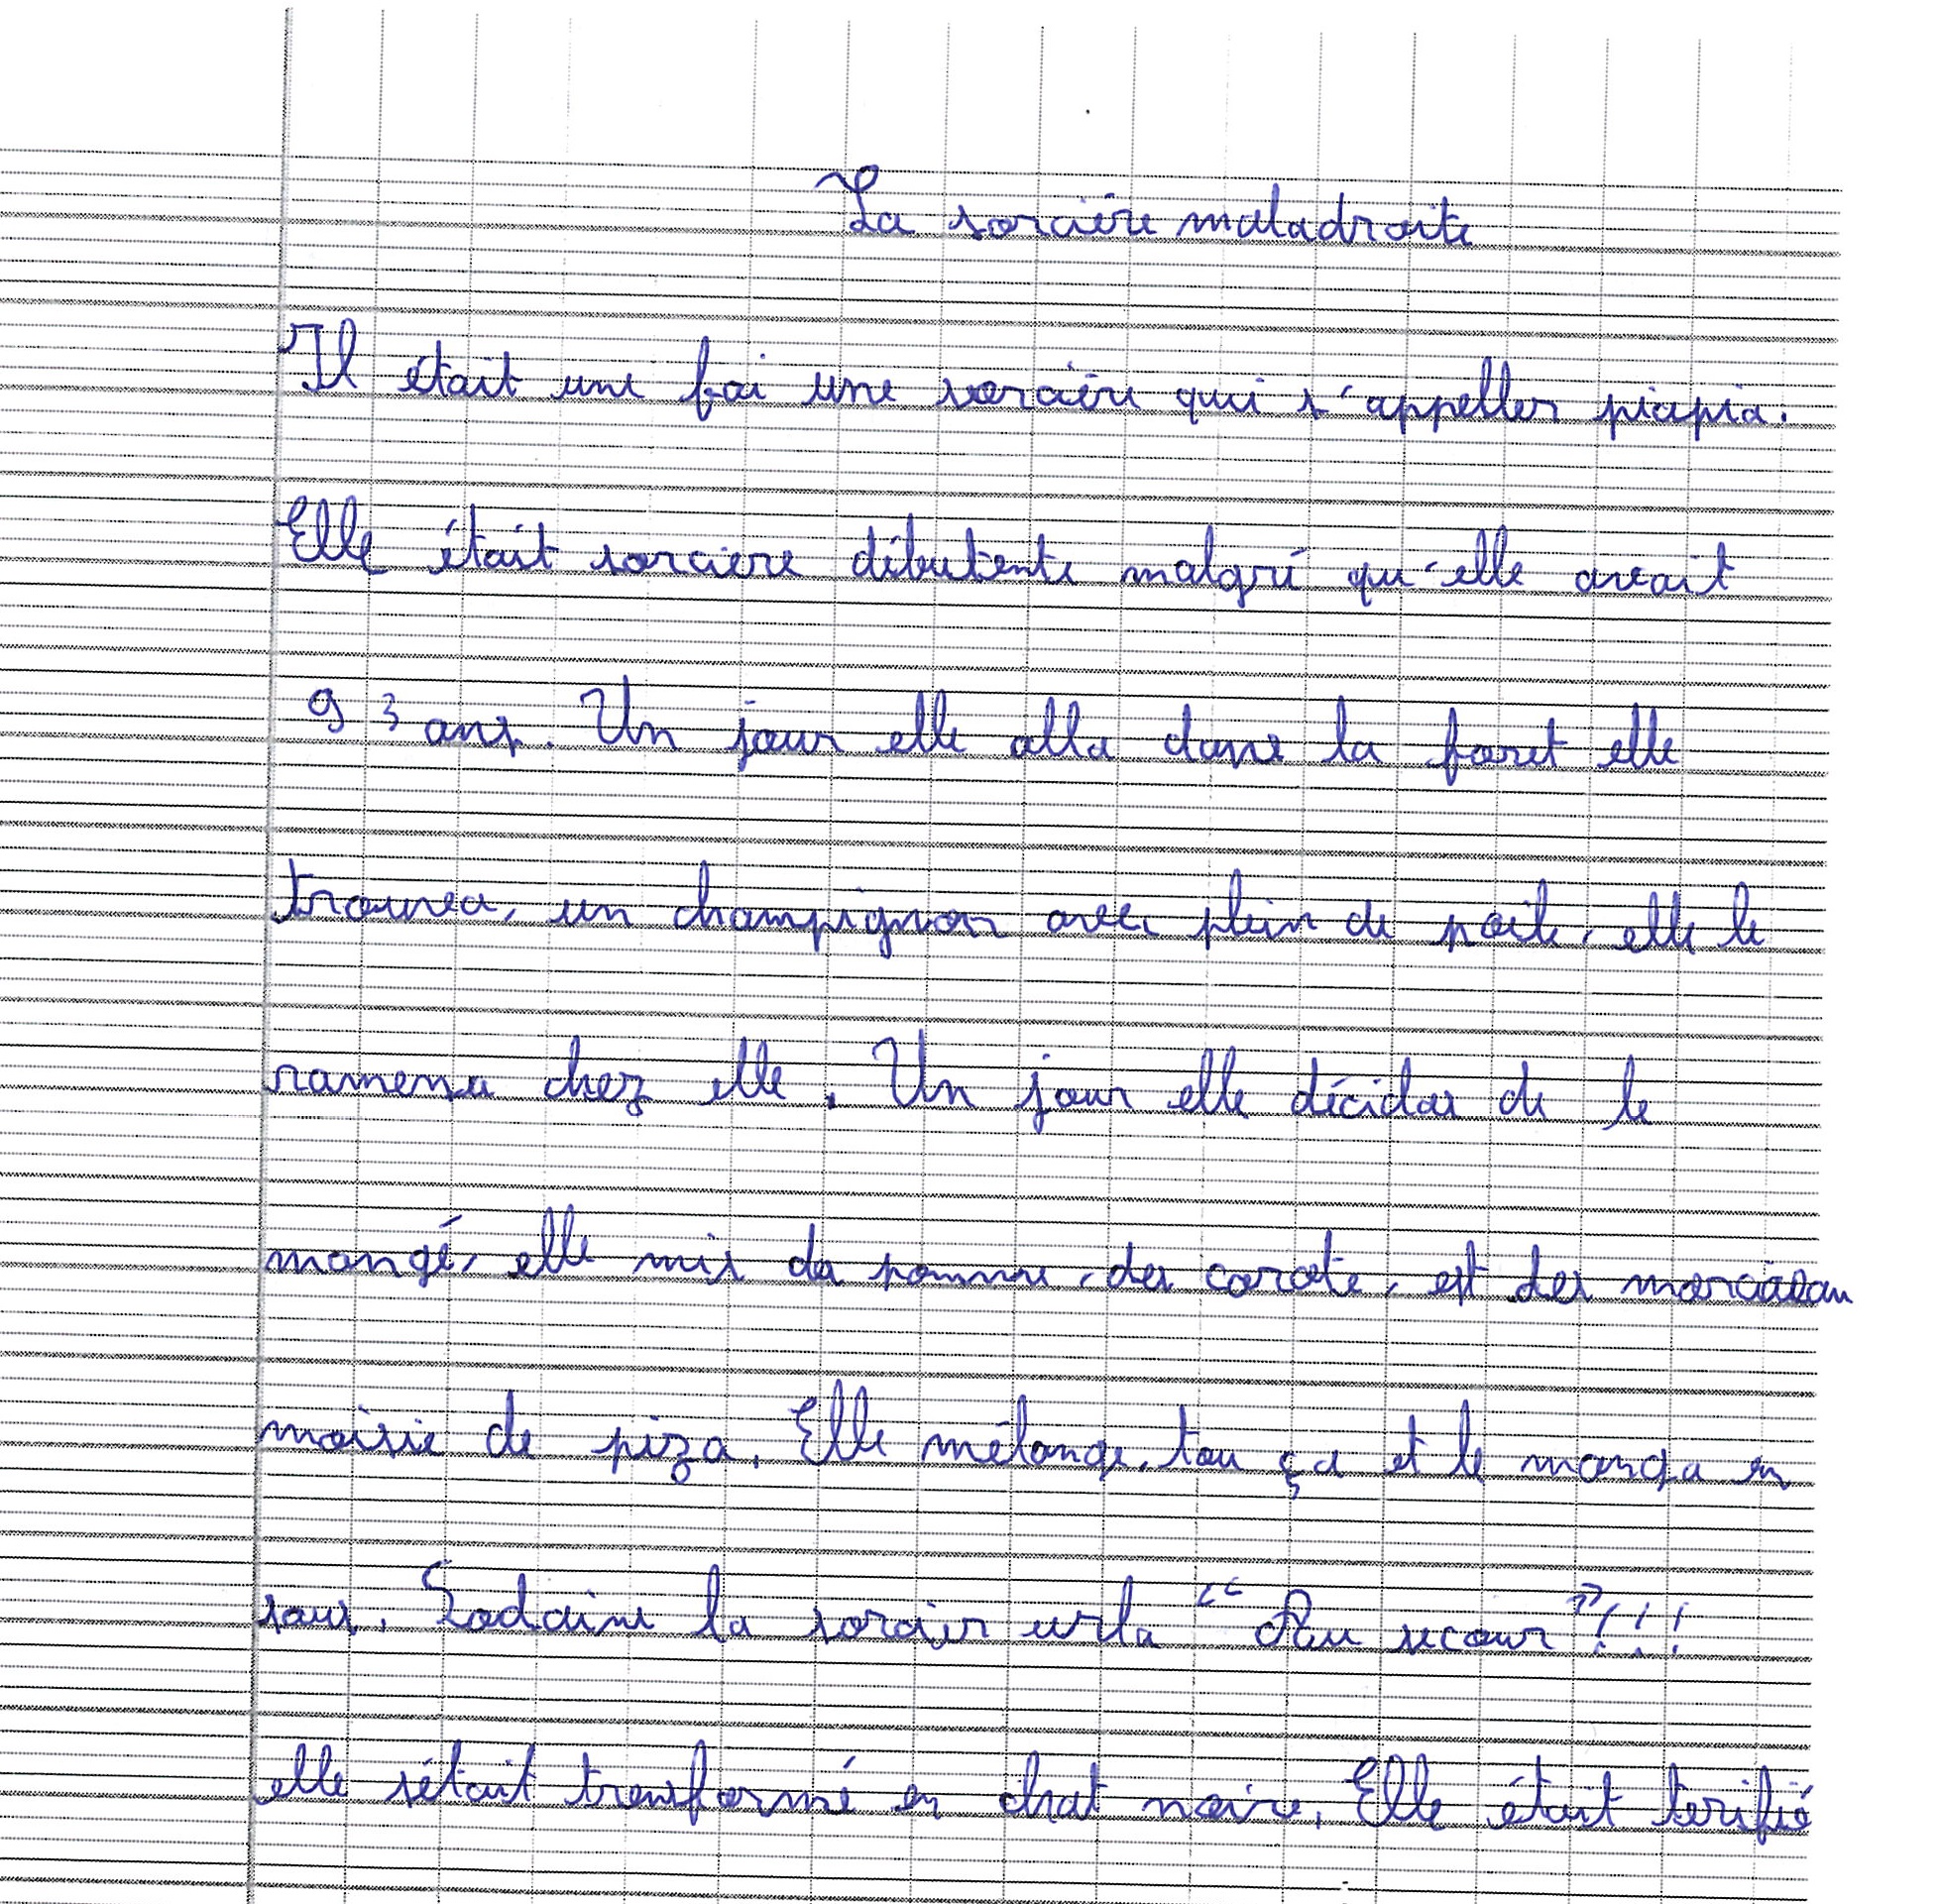 La sorcière maladroite
Il était une foi une sorcière qui s'appeller piapia.
Elle était sorciere débutente malgré qu'elle avait
93 ans. Un jour elle alla dans la foret elle
trouva, un champignon avec plein de poile, elle le
ramena chez elle. Un jour elle décida de le
mangé, elle mis de pomme, des carote, est des morcaeau
moisie de piza. Elle mélange tou ça et le manga en
sous. Sodaine la sorcier urla "Au secour"!!!
elle sétait transformé en chat noire. Elle était terifié